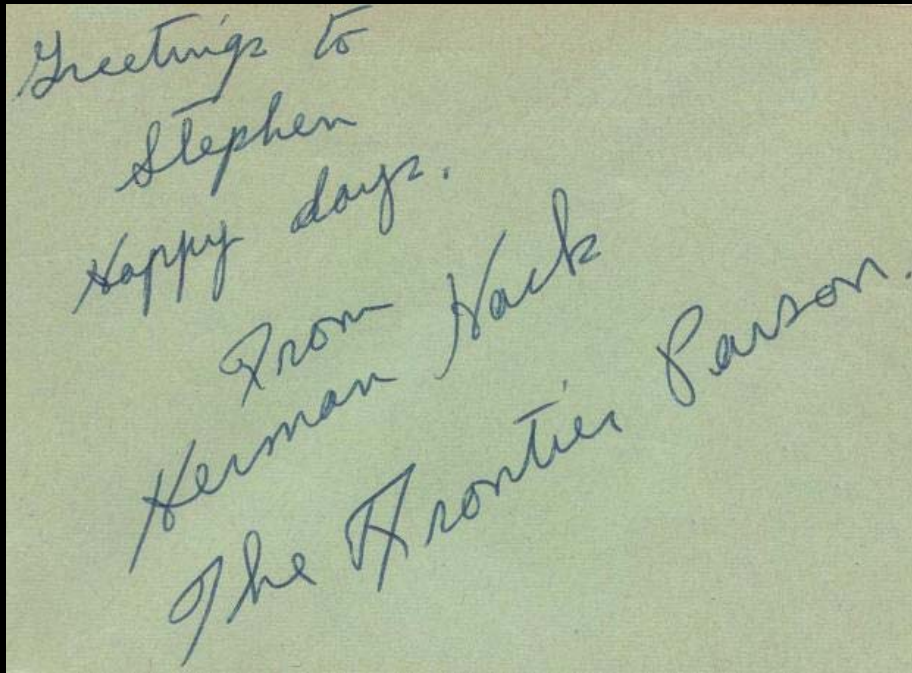 Greetings to
Stephen
Happy days.
From
Herman Hack
The Frontier Parson.